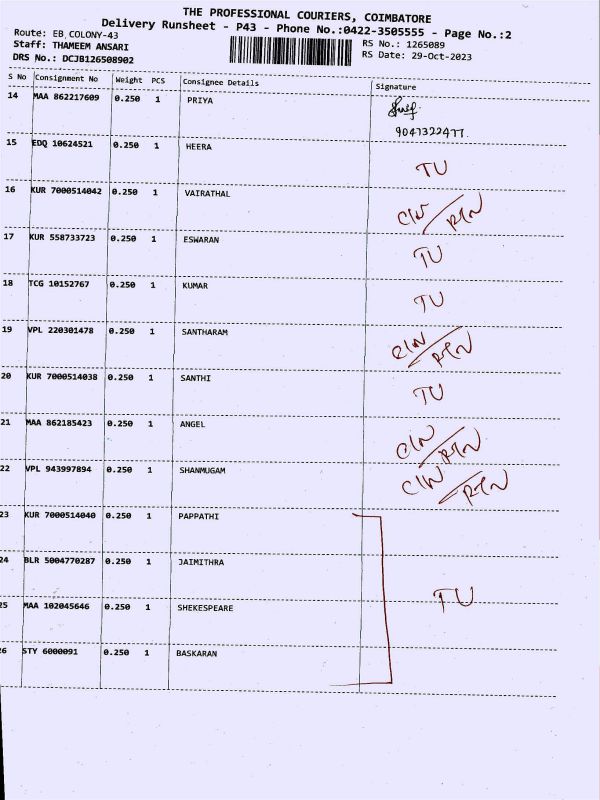 THE PROFESSIONAL COURIERS, COIMBATORE
Delivery Runsheet - P43 - Phone No.:0422-3505555 - Page No.:2
Route: EB COLONY-43
RS No.: 1265089
Staff: THAMEEM ANSARI
RS Date: 29-Oct-2023
DRS No.: DCJB126508902
S No Consignment No Weight PCS Consignee Details Signature
14 MAA 862217609 0.250 1 PRIYA
9047322477.
15 EDQ 10624521 0.250 1 HEERA TU
16 KUR 7000514042 0.250 1 VAIRATHAL CIN/RTN
17 KUR 558733723 0.250 1 ESWARAN TU
18 TCG 10152767 0.250 1 KUMAR TU
19 VPL 220301478 0.250 1 SANTHARAM CIN/RTN
20 KUR 7000514038 0.250 1 SANTHI TU
21 MAA 862185423 0.250 1 ANGEL CIN/RTN
22 VPL 943997894 0.250 1 SHANMUGAM CIN/RTN
23 KUR 7000514040 0.250 1 PAPPATHI
24 BLR 5004770287 0.250 1 JAIMITHRA
25 MAA 102045646 0.250 1 SHEKESPEARE TU
26 STY 6000091 0.250 1 BASKARAN